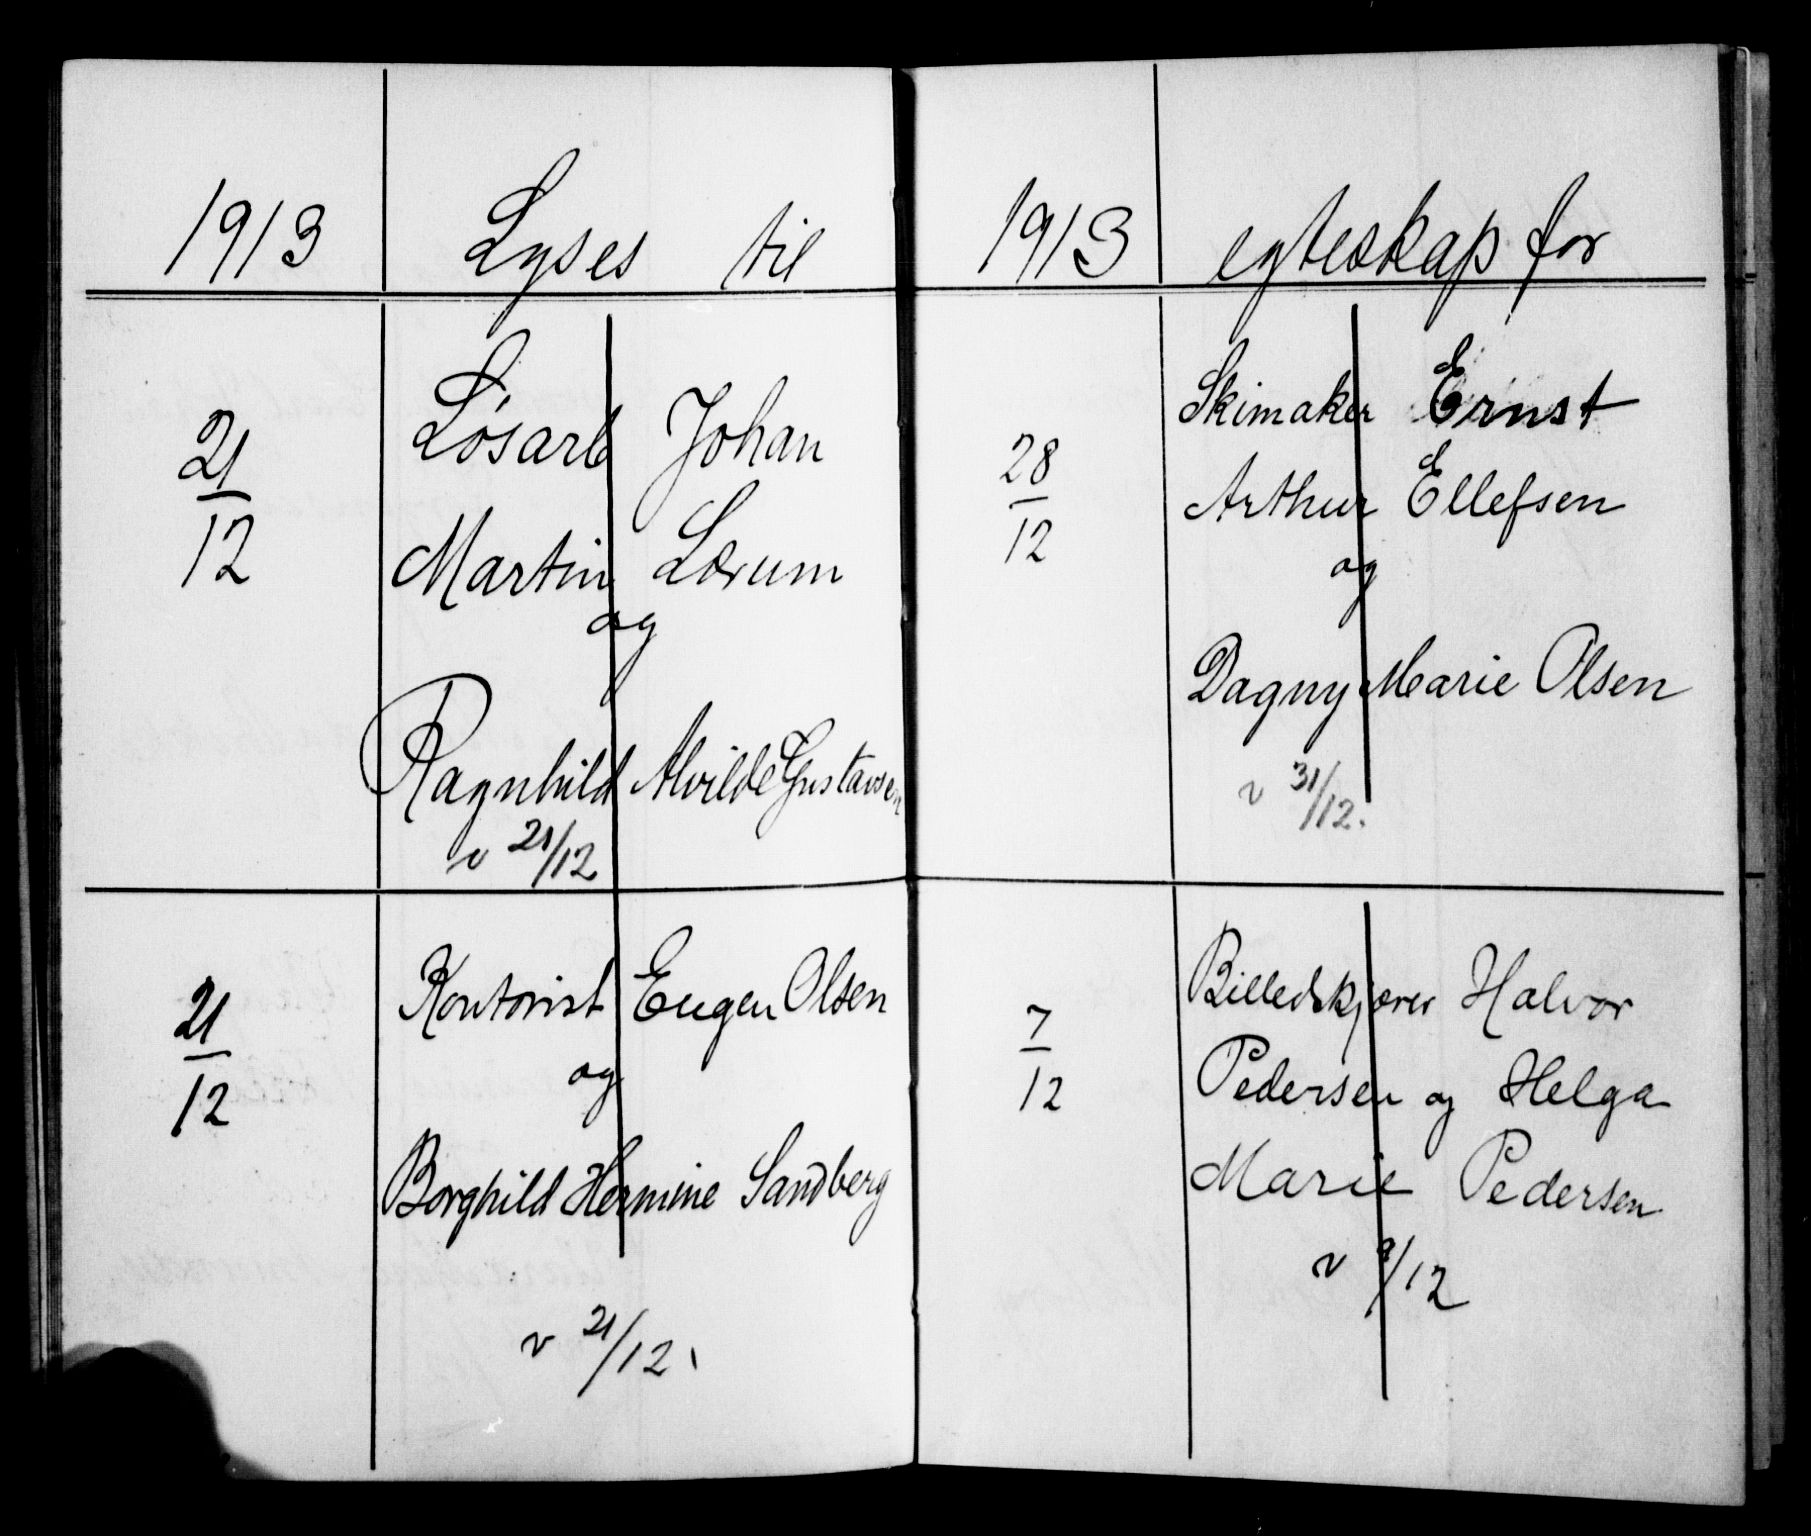 1913 Lyses til
21/12 Løsarb Johan
Martin Lørum
og
Ragnhild Alvilde Gustavsen
v 21/12
21/12 Kontorist Eugen Olsen
og
Borghild Hermine Sandberg
v 21/12.
1913 egteskap for
28/12 Skimaker Ernst
Arthur Ellefsen
og
Dagny Marie Olsen
v 31/12.
7/12 Billedskjærer Halvor
Pedersen og Helga
Marie Pedersen
v 9/12